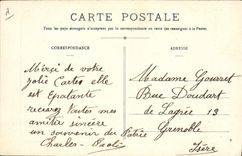 CARTE POSTALE
Tous les pays étrangers n'acceptent pas la correspondance au verso (se renseigner à la Poste)
CORRESPONDANCE
ADRESSE
Merçi de votre
jolie Carte elle
est Epatante
recevez toutes mes
amitié sincère
un souvenir du
Charles
Madame Gourret
Rue Doudart
de Lagrée 13
Grenoble
Isère